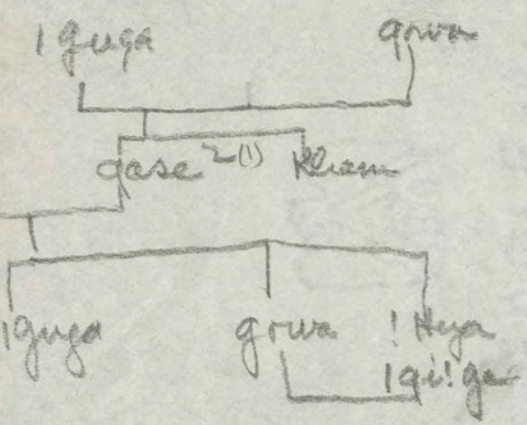 |guga grwa
qase 2(1) Kham
|guga grwa !Huya
|qi!ga